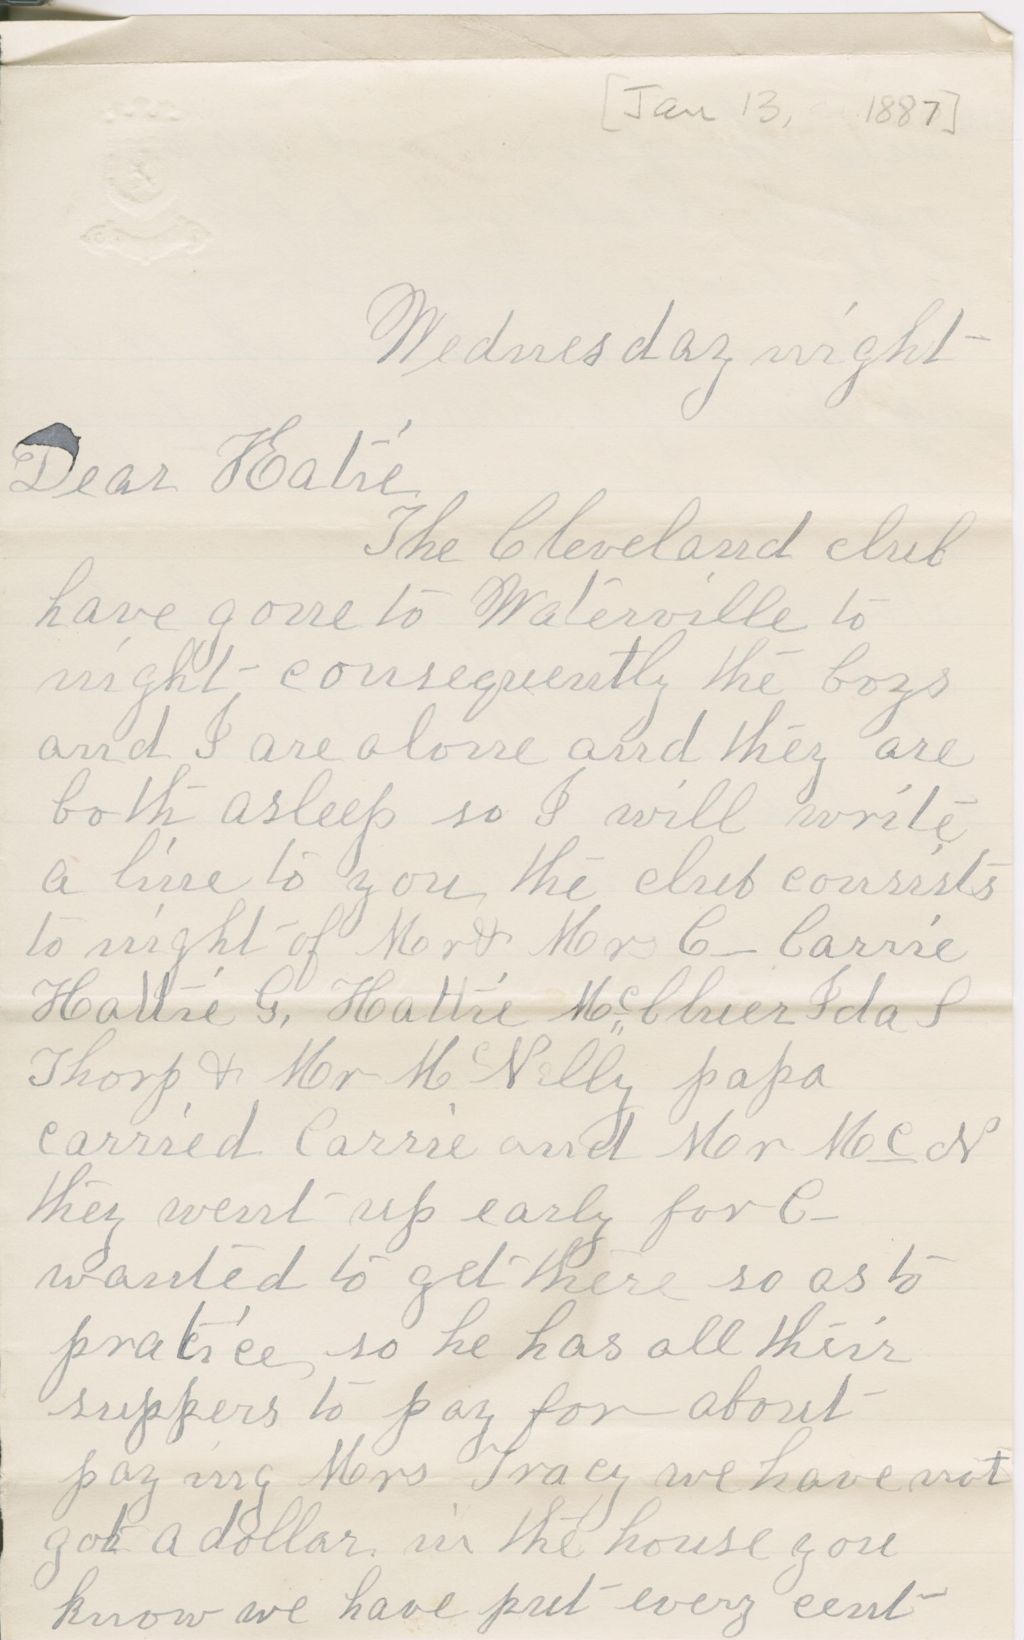 [Jan 13, 1887]
Wednesday night
Dear Hatie
The Cleveland club
have gone to Waterville to
night consequently the boys
and I are alone and they are
both asleep so I will write
a line to you, the club consists
to night of Mr & Mrs C— Carrie
Hattie G, Hattie McCluer Ida S
Thorp & Mr McNelly papa
carried Carrie and Mr McN
they went up early for C—
wanted to get there so as to
pratice, so he has all their
suppers to pay for about
paying Mrs Tracy we have not
got a dollar in the house you
know we have put every cent